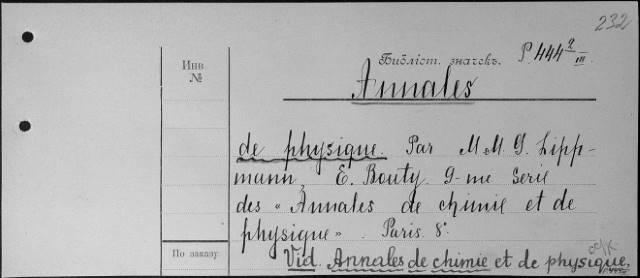 232
Инв. №
Библіот. значекъ. P.444 2/III.
Annales
de physique. Par M.M. G. Lipp-
mann, E. Bouty. 9-me Serie
des « Annales de chimie et de
physique». Paris. 8°.
По заказу
Vid. Annales de chimie et de physique.